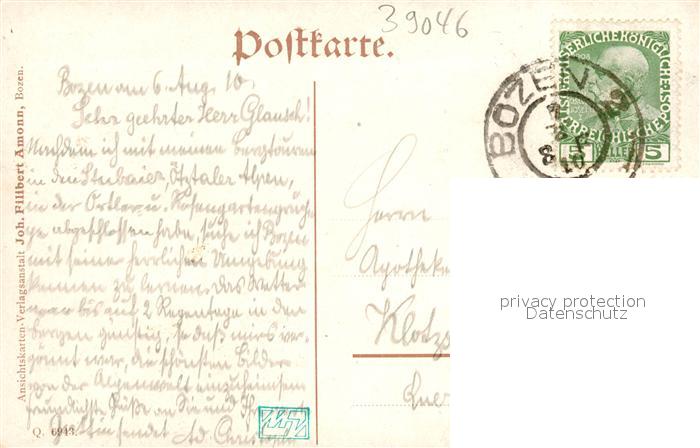 39046
Postkarte.
BOZEN
KAISERLICHE KÖNIGLICHE
ÖSTERREICHISCHE POST
5 HELLER 5
Bozen am 6. Aug. 10.
Sehr geehrter Herr Glausch!
Nachdem ich mit meinen Bergtouren
in den Stubaier, Ötztaler Alpen,
in der Ortler u. Rosengartengrup-
pe abgeschlossen habe, suche ich Bozen
mit seiner herrlichen Umgebung
kennen zu lernen. Das Wetter
war bis auf 2 Regentage in den
Bergen günstig, so daß mir ver-
gönnt war, die schönsten Bilder
von der Alpenwelt einzuheimsen
freundlichste Grüße an Sie und
sendet Ad.
Herrn
Apotheke
Klotzs
privacy protection
Datenschutz
Ansichtskarten-Verlagsanstalt Joh. Filibert Amonn, Bozen.
Q. 6943.